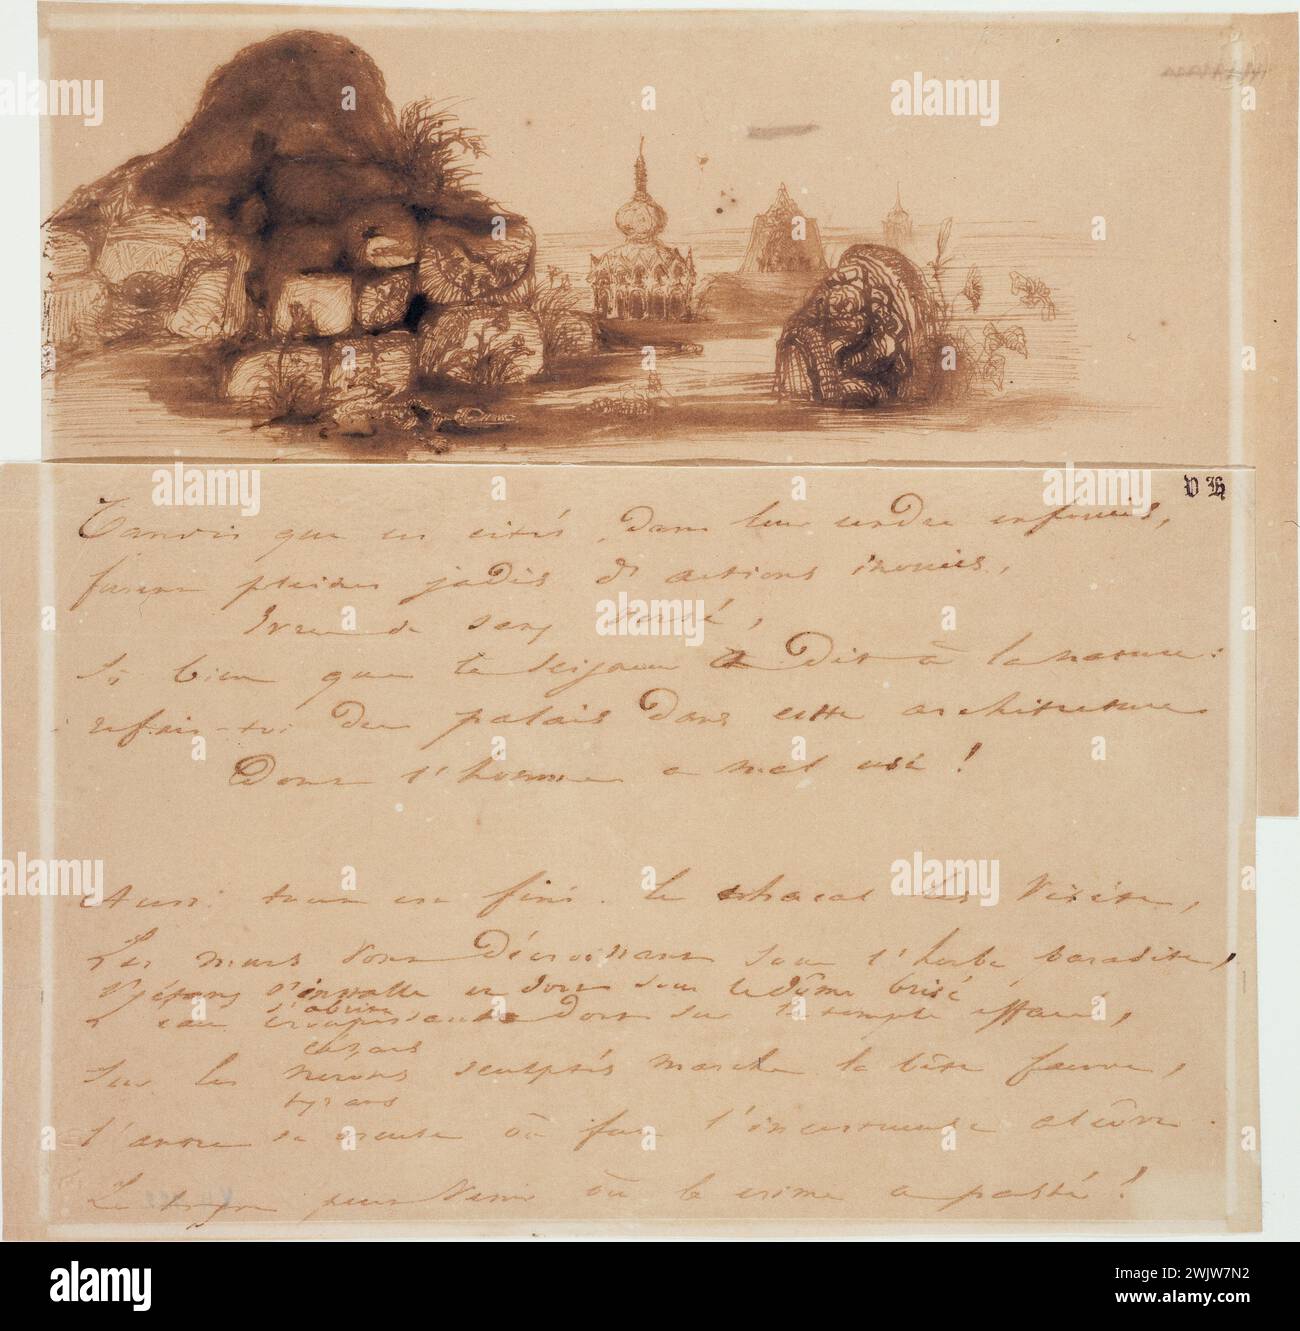 VH
Tandis que ces cités, dans leur cendre enfouies,
furent pleines jadis d'actions inouies,
Ivres de sang versé,
Si bien que le Seigneur a dit à la nature :
refais-toi des palais dans cette architecture
Dont l'homme a mal usé !
Aussi tout est fini. Le chacal les visite,
Les murs vont décroissant sous l'herbe parasite,
L'étang s'installe et dort sous le dôme brisé
s'abrite
L'eau croupissante dort sur le temple effacé,
césars
Sur les nérons sculptés marche la bête fauve,
tyrans
L'antre se creuse où fut l'incestueuse alcôve.
Le tigre peut venir où le crime a passé !
alamy
Image ID: 2WJW7N2
www.alamy.com